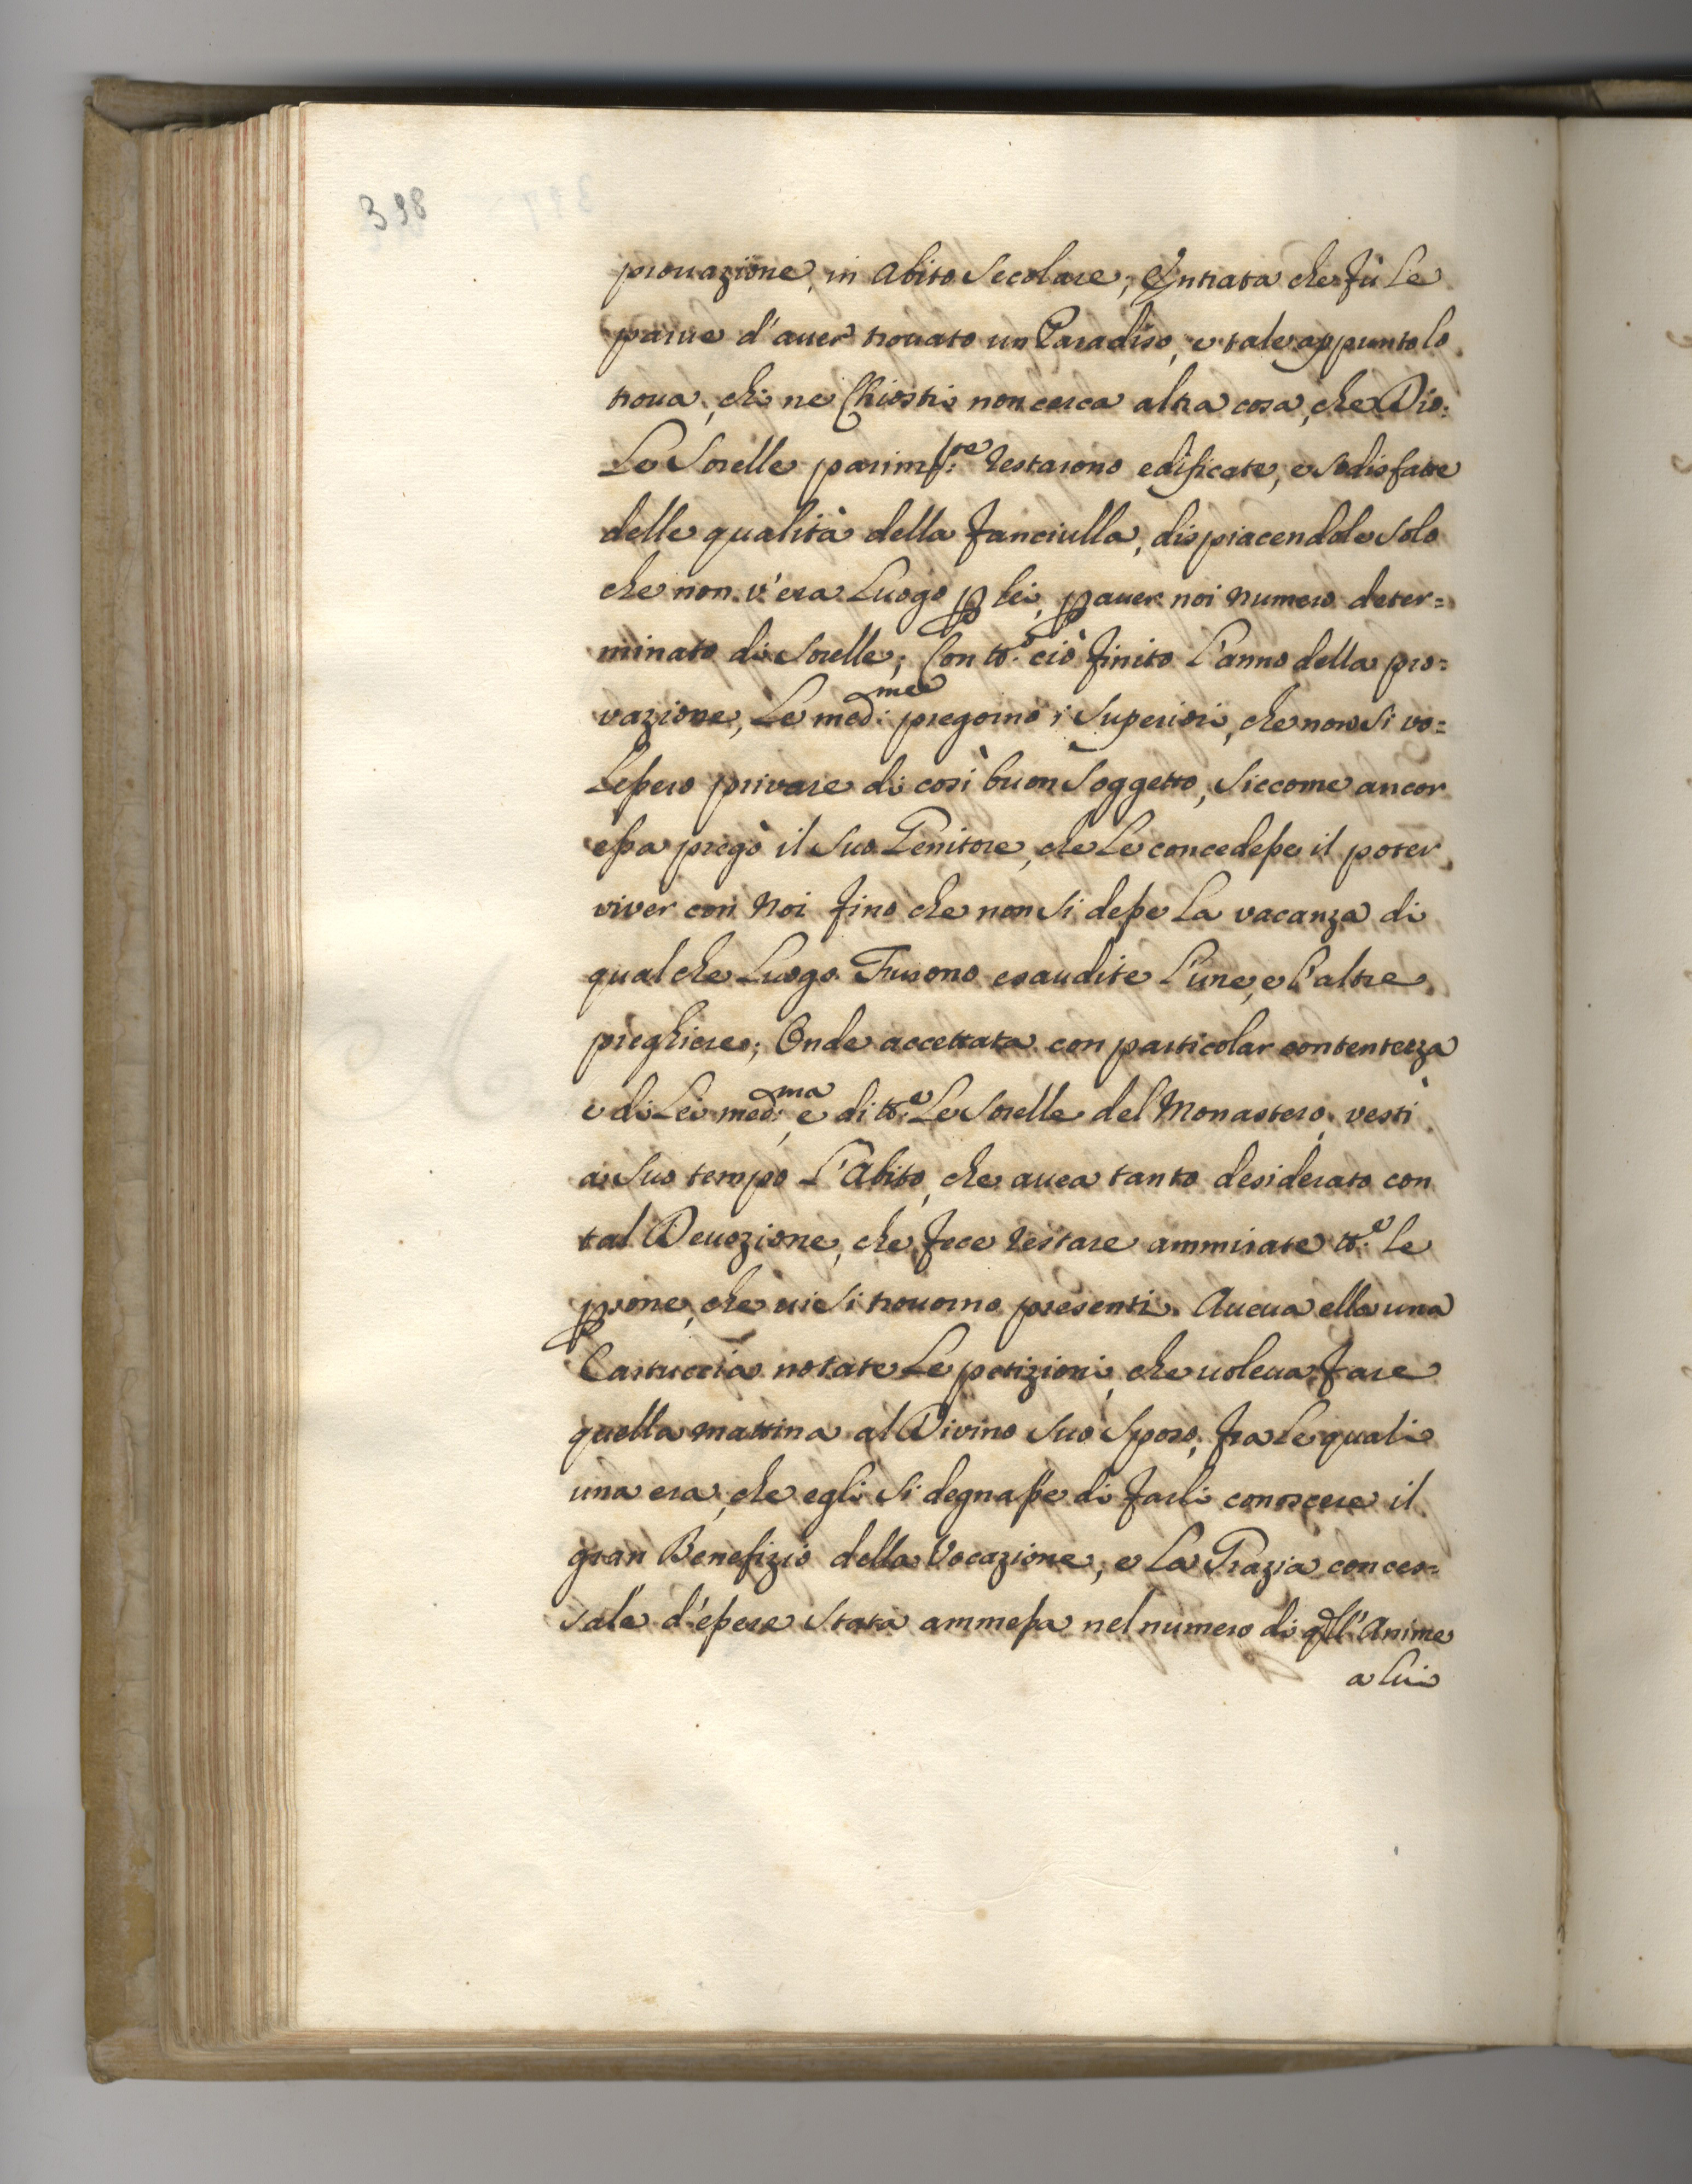 398
prouazione, in Abito Secolare; Entrata che fù Le
parue d'auer trouato un Paradiso, e tale appunto lo
troua, chi ne Chiostri non cerca altra cosa, che Dio:
Le Sorelle parim.te restarono edificate, e sodisfatte
delle qualità della fanciulla, dispiacendole solo
che non v'era Luogo p lei, p auer noi numero deter=
minato di Sorelle; Con tt.o ciò finito l'anno della pro=
vazione, Le med.me pregorno i Superiori, che non si vo=
lessero privare di così buon soggetto, siccome ancor
essa pregò il suo Genitore, che Le concedesse il poter
viver con noi fino che non si desse la vacanza di
qualche Luogo. Furono esaudite l'une, e l'altre
preghiere; Onde accettata con particolar contentezza
e di Lei med.ma, e di tt.e Le Sorelle del Monastero, vestì
a suo tempo L'Abito, che auea tanto desiderato con
tal Deuozione, che fece restare ammirate tt.e le
pone, che ui si trouorno presenti. Aueua ella una
Cartuccia notate Le petizioni, che uoleua fare
quella mattina al Divino suo Sposo, fra le quali
una era, che egli si degnasse di farli conoscere il
gran Benefizio della Vocazione, e La Grazia conces=
sale d'essere stata ammessa nel numero di qll'Anime
a lui